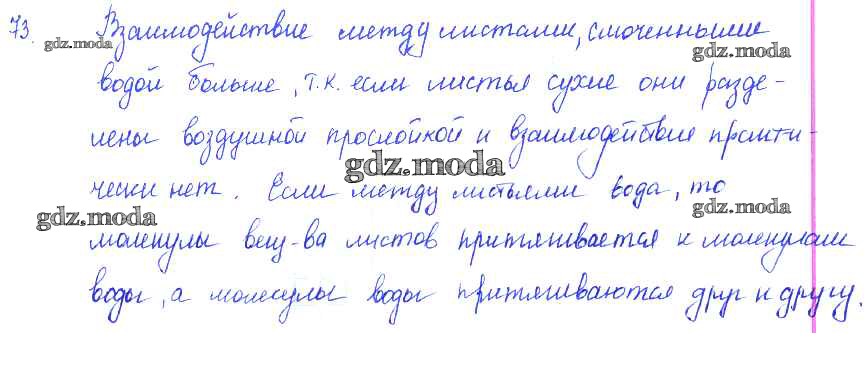 73. Взаимодействие между листами, смоченными
gdz.moda
gdz.moda
водой больше, т.к. если листья сухие они разде-
лены воздушной прослойкой и взаимодействия практи-
gdz.moda
чески нет. Если между листьями вода, то
gdz.moda
gdz.moda
молекулы вещ-ва листов притягивается к молекулам
воды, а молекулы воды притягиваются друг к другу.